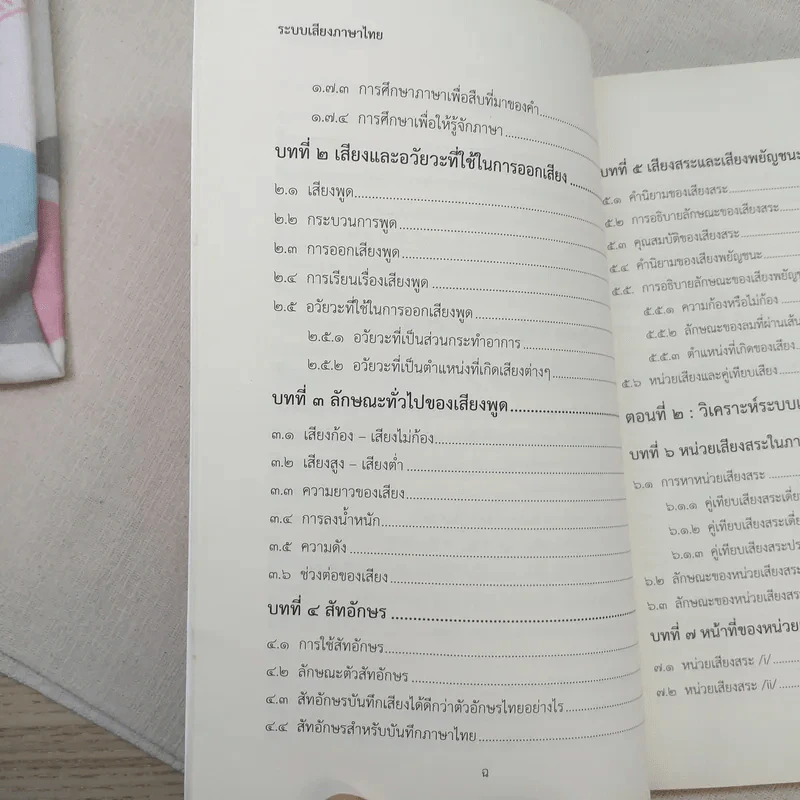 ระบบเสียงภาษาไทย
๑.๗.๓ การศึกษาภาษาเพื่อสืบที่มาของคำ
๑.๗.๔ การศึกษาเพื่อให้รู้จักภาษา
บทที่ ๒ เสียงและอวัยวะที่ใช้ในการออกเสียง
๒.๑ เสียงพูด
๒.๒ กระบวนการพูด
๒.๓ การออกเสียงพูด
๒.๔ การเรียนเรื่องเสียงพูด
๒.๕ อวัยวะที่ใช้ในการออกเสียงพูด
๒.๕.๑ อวัยวะที่เป็นส่วนกระทำอาการ
๒.๕.๒ อวัยวะที่เป็นตำแหน่งที่เกิดเสียงต่างๆ
บทที่ ๓ ลักษณะทั่วไปของเสียงพูด
๓.๑ เสียงก้อง – เสียงไม่ก้อง
๓.๒ เสียงสูง – เสียงต่ำ
๓.๓ ความยาวของเสียง
๓.๔ การลงน้ำหนัก
๓.๕ ความดัง
๓.๖ ช่วงต่อของเสียง
บทที่ ๔ สัทอักษร
๔.๑ การใช้สัทอักษร
๔.๒ ลักษณะตัวสัทอักษร
๔.๓ สัทอักษรบันทึกเสียงได้ดีกว่าตัวอักษรไทยอย่างไร
๔.๔ สัทอักษรสำหรับบันทึกภาษาไทย
ฉ
บทที่ ๕ เสียงสระและเสียงพยัญชนะ
๕.๑ คำนิยามของเสียงสระ
๕.๒ การอธิบายลักษณะของเสียงสระ
๕.๓ คุณสมบัติของเสียงสระ
๕.๔ คำนิยามของเสียงพยัญชนะ
๕.๕. การอธิบายลักษณะของเสียงพยัญ
๕.๕.๑ ความก้องหรือไม่ก้อง
๕.๕.๒ ลักษณะของลมที่ผ่านเส้น
๕.๕.๓ ตำแหน่งที่เกิดของเสียง
๕.๖ หน่วยเสียงและคู่เทียบเสียง
ตอนที่ ๒ : วิเคราะห์ระบบเ
บทที่ ๖ หน่วยเสียงสระในภา
๖.๑ การหาหน่วยเสียงสระ
๖.๑.๑ คู่เทียบเสียงสระเดี่ย
๖.๑.๒ คู่เทียบเสียงสระเดี่ย
๖.๑.๓ คู่เทียบเสียงสระประ
๖.๒ ลักษณะของหน่วยเสียงสระ
๖.๓ ลักษณะของหน่วยเสียงสระ
บทที่ ๗ หน้าที่ของหน่วย
๗.๑ หน่วยเสียงสระ /i/
๗.๒ หน่วยเสียงสระ /ii/